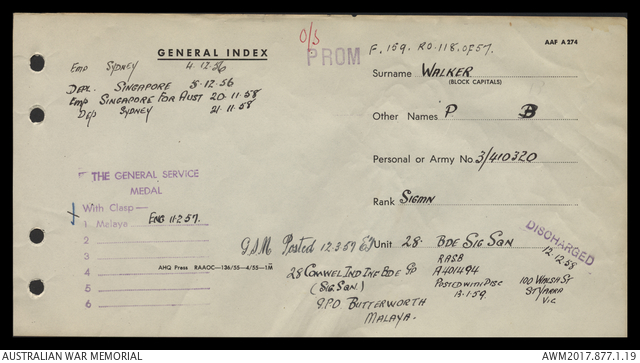 GENERAL INDEX
O/S
PROM
F. 159. RO. 118. OF 57.
AAF A 274
Emp SYDNEY 4.12.56
Dep. SINGAPORE 5.12.56
Emp SINGAPORE FOR AUST 20.11.58
Dep SYDNEY 21.11.58
Surname WALKER
(BLOCK CAPITALS)
Other Names P B
Personal or Army No 3/410320
Rank SIGMN
THE GENERAL SERVICE
MEDAL
With Clasp—
1 Malaya 11.2.57.
2
3
4
5
6
AHQ Press RAAOC—136/55—4/55—1M
G.S.M Posted 12.3.59
Unit 28. BDE SIG SQN
DISCHARGED
12.12.58
28 COMWEL IND INF BDE GP
(SIG SQN)
G.P.O BUTTERWORTH
MALAYA.
RASB
A401494
POSTED WITH DISC
13.1.59.
100 WALSH ST
ST YARRA
VIC
AUSTRALIAN WAR MEMORIAL
AWM2017.877.1.19